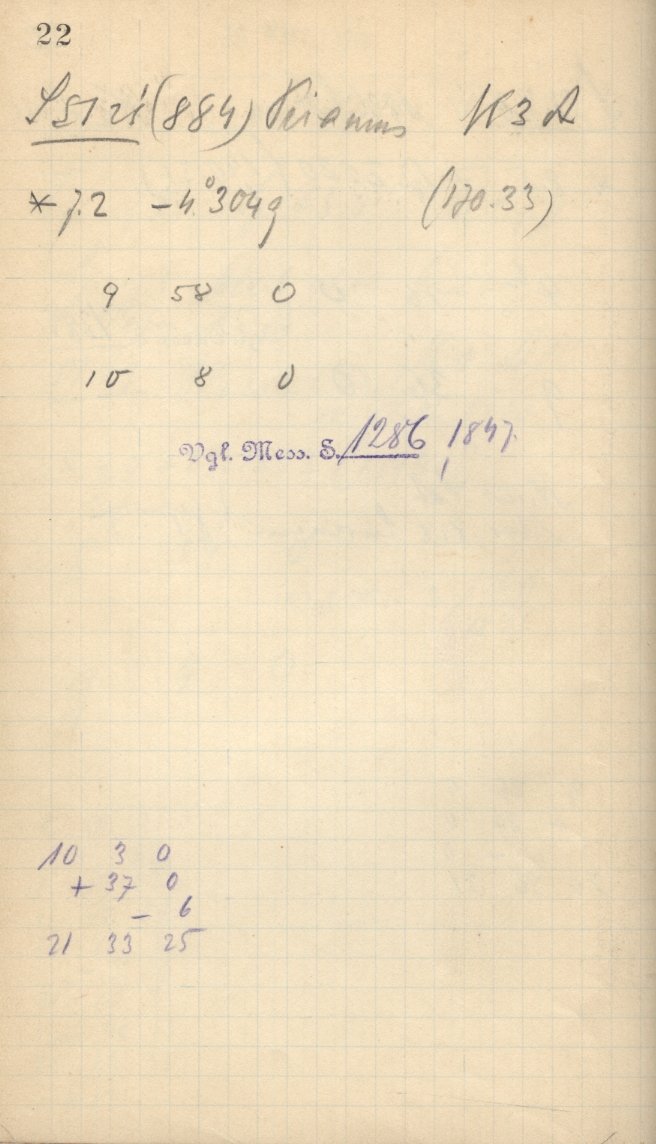 22
(884) Priamus K 3 A
* 7.2 -4°3049 (170.33)
9 58 0
10 8 0
Vgl. Mess. S. 1286, 1847.
10 3 0
+ 37 0
- 6
21 33 25